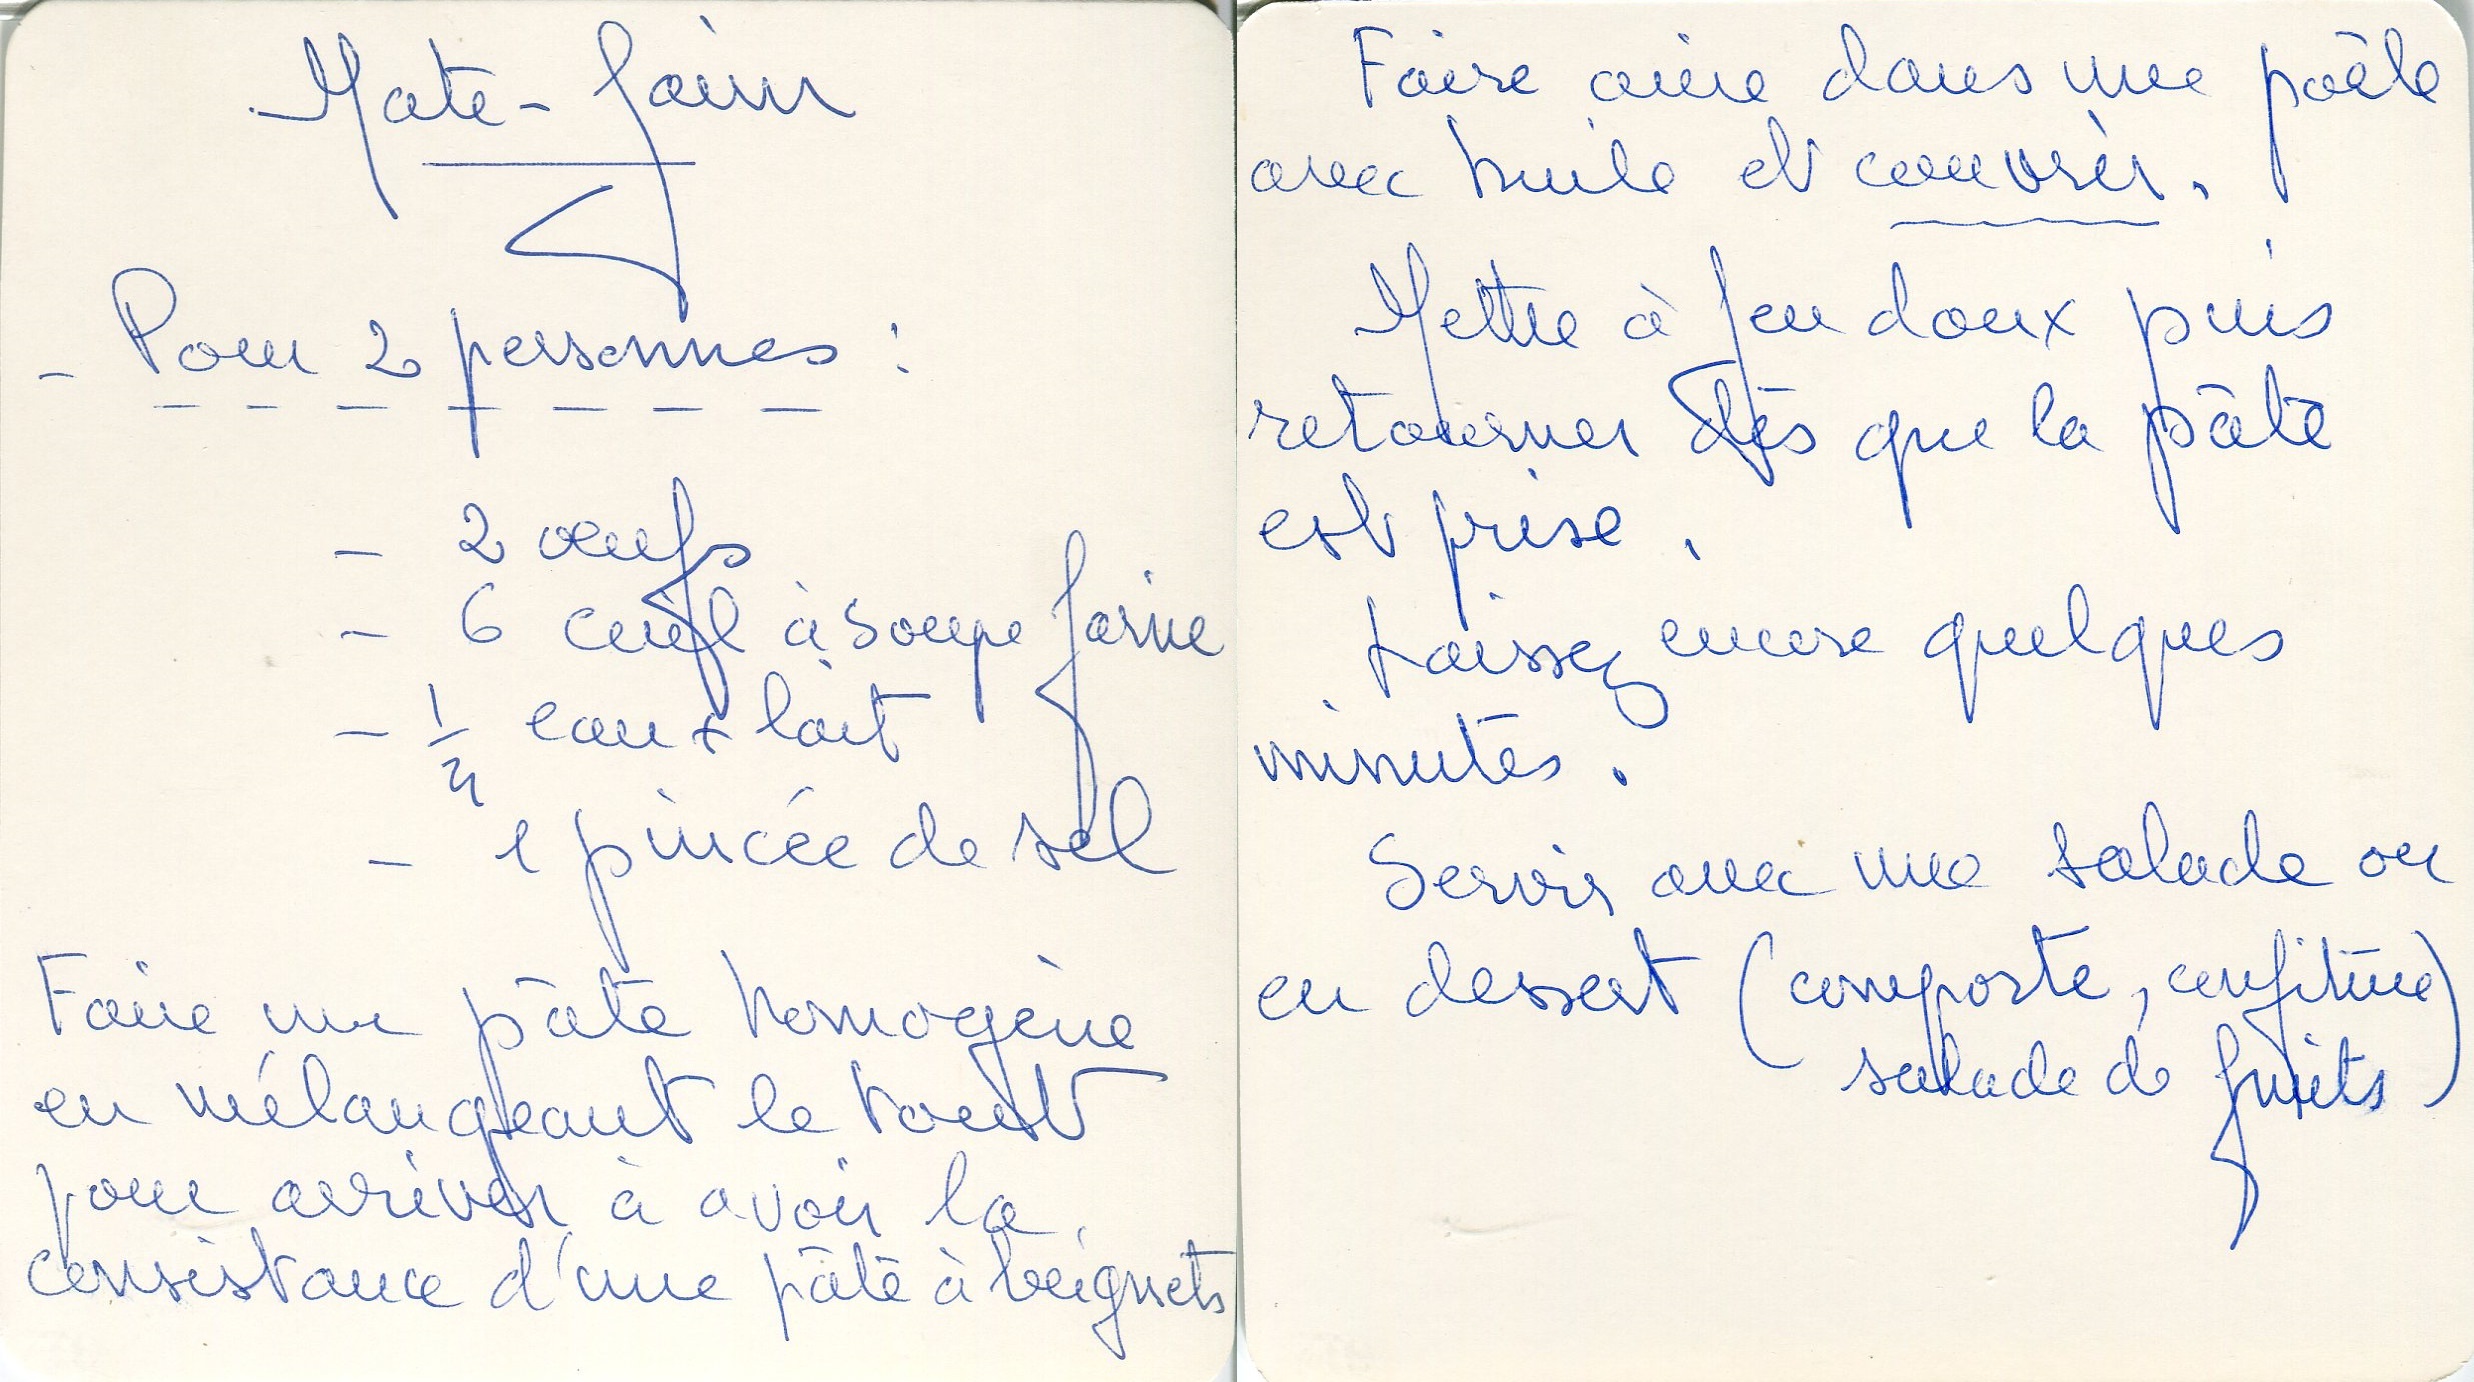 Mate-faim
- Pour 2 personnes :
- 2 oeufs
- 6 cuil à soupe farine
- 1/4 eau + lait
- 1 pincée de sel
Faire une pâte homogène
en mélangeant le tout
pour arriver à avoir la
consistance d'une pâte à beignets
Faire cuire dans une poêle
avec huile et couvrir.
Mettre à feu doux puis
retourner dès que la pâte
est prise.
Laissez encore quelques
minutes.
Servir avec une salade ou
en dessert (compote, confiture
salade de fruits)